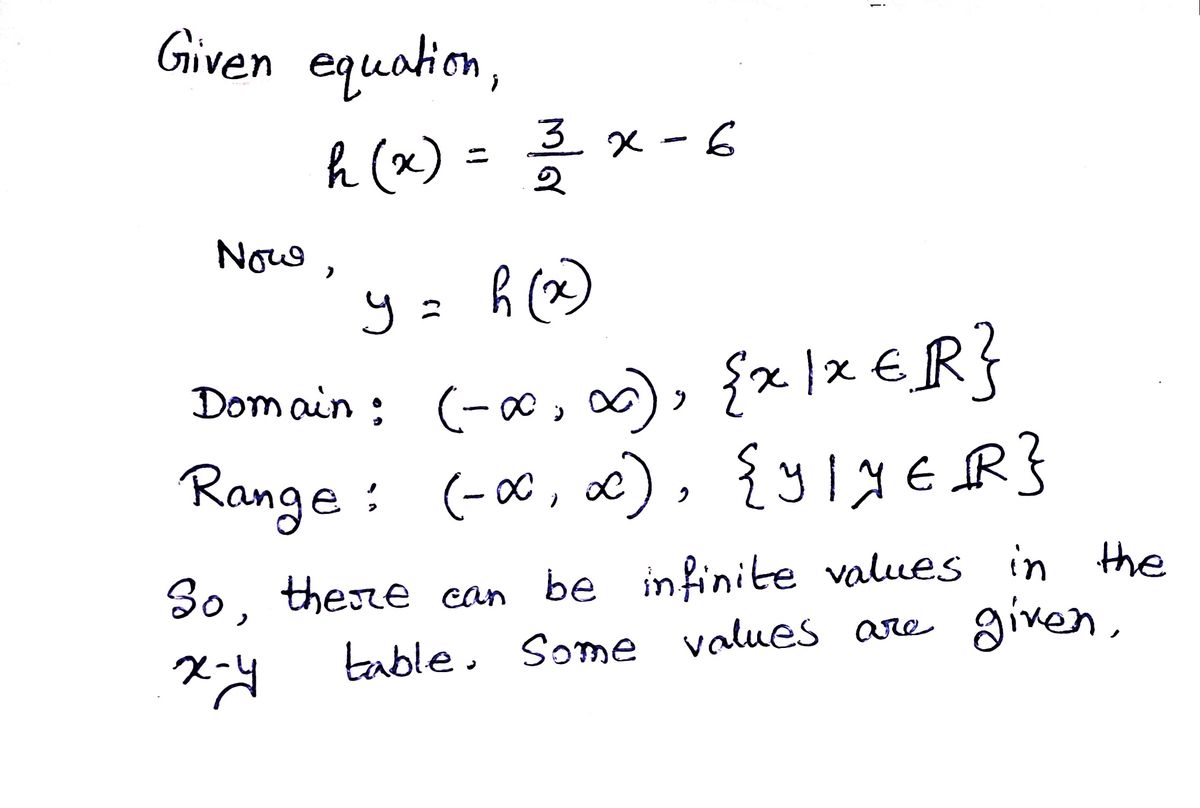 Given equation,
h(x) = 3/2 x - 6
Now,
y = h(x)
Domain: (-∞, ∞), {x | x ∈ ℝ}
Range: (-∞, ∞), {y | y ∈ ℝ}
So, there can be infinite values in the
x-y table. Some values are given.